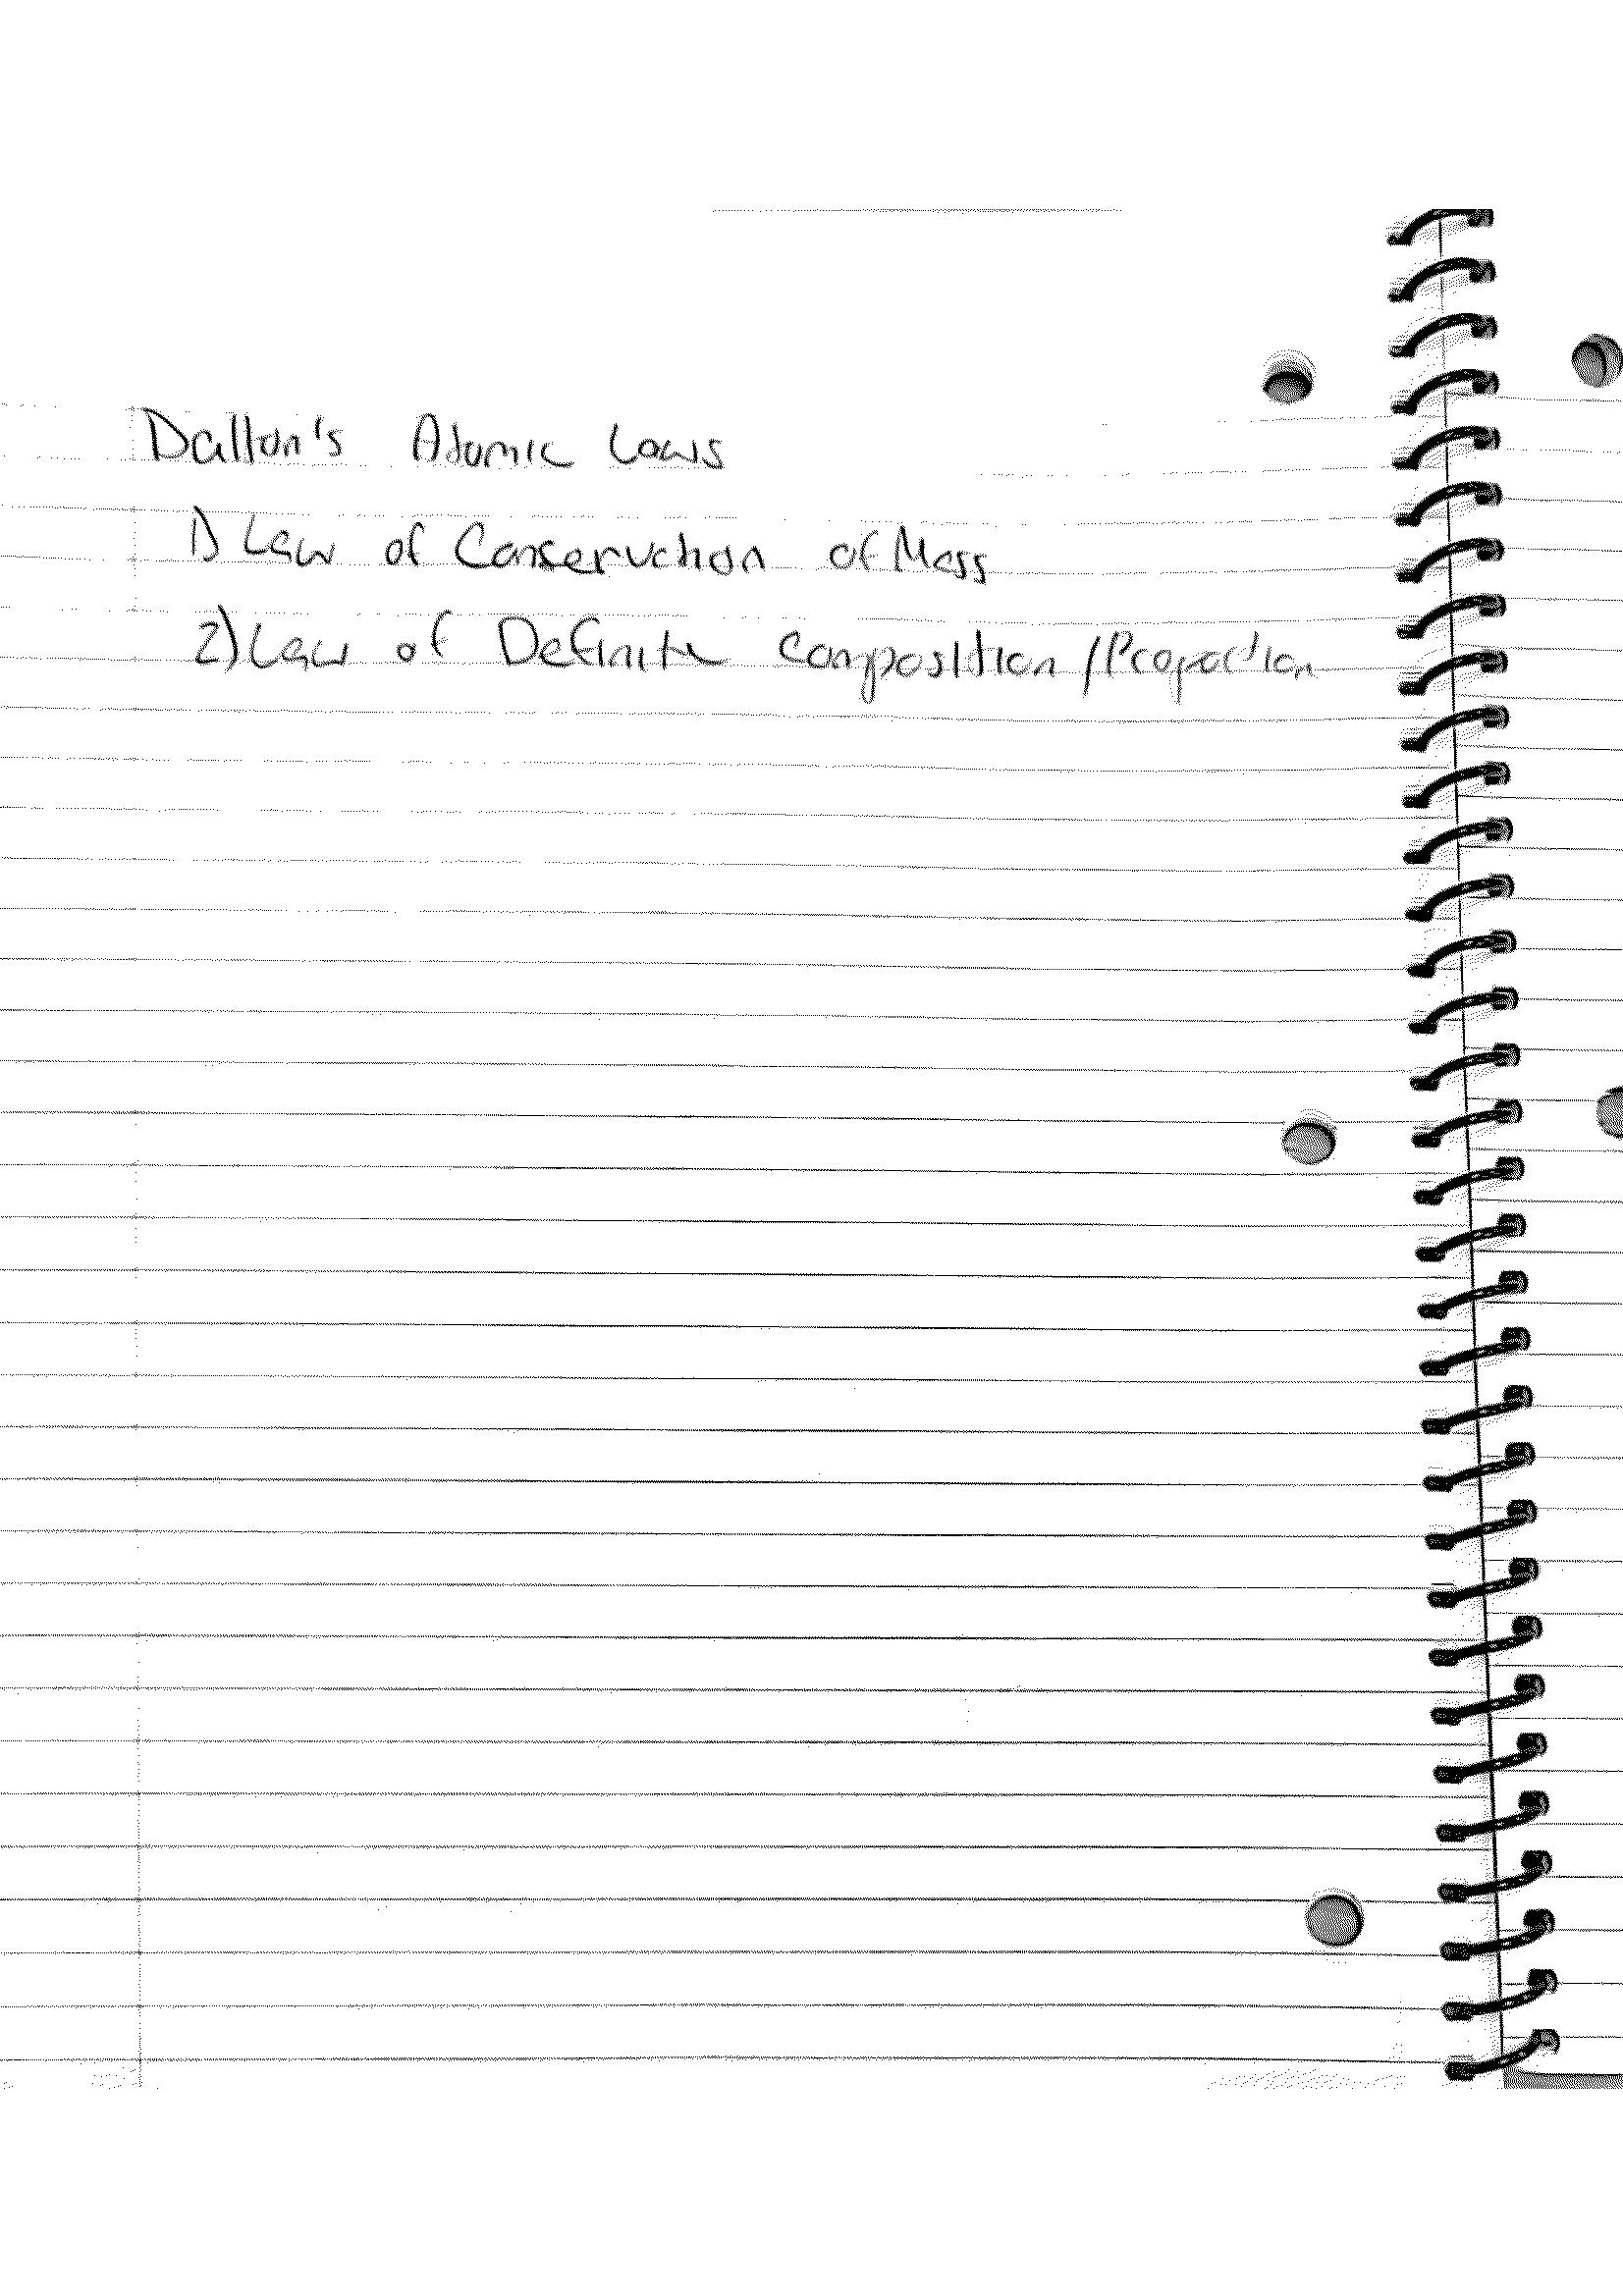 Dalton's Atomic Laws
1) Law of Conservation of Mass
2) Law of Definite Composition / Proportion